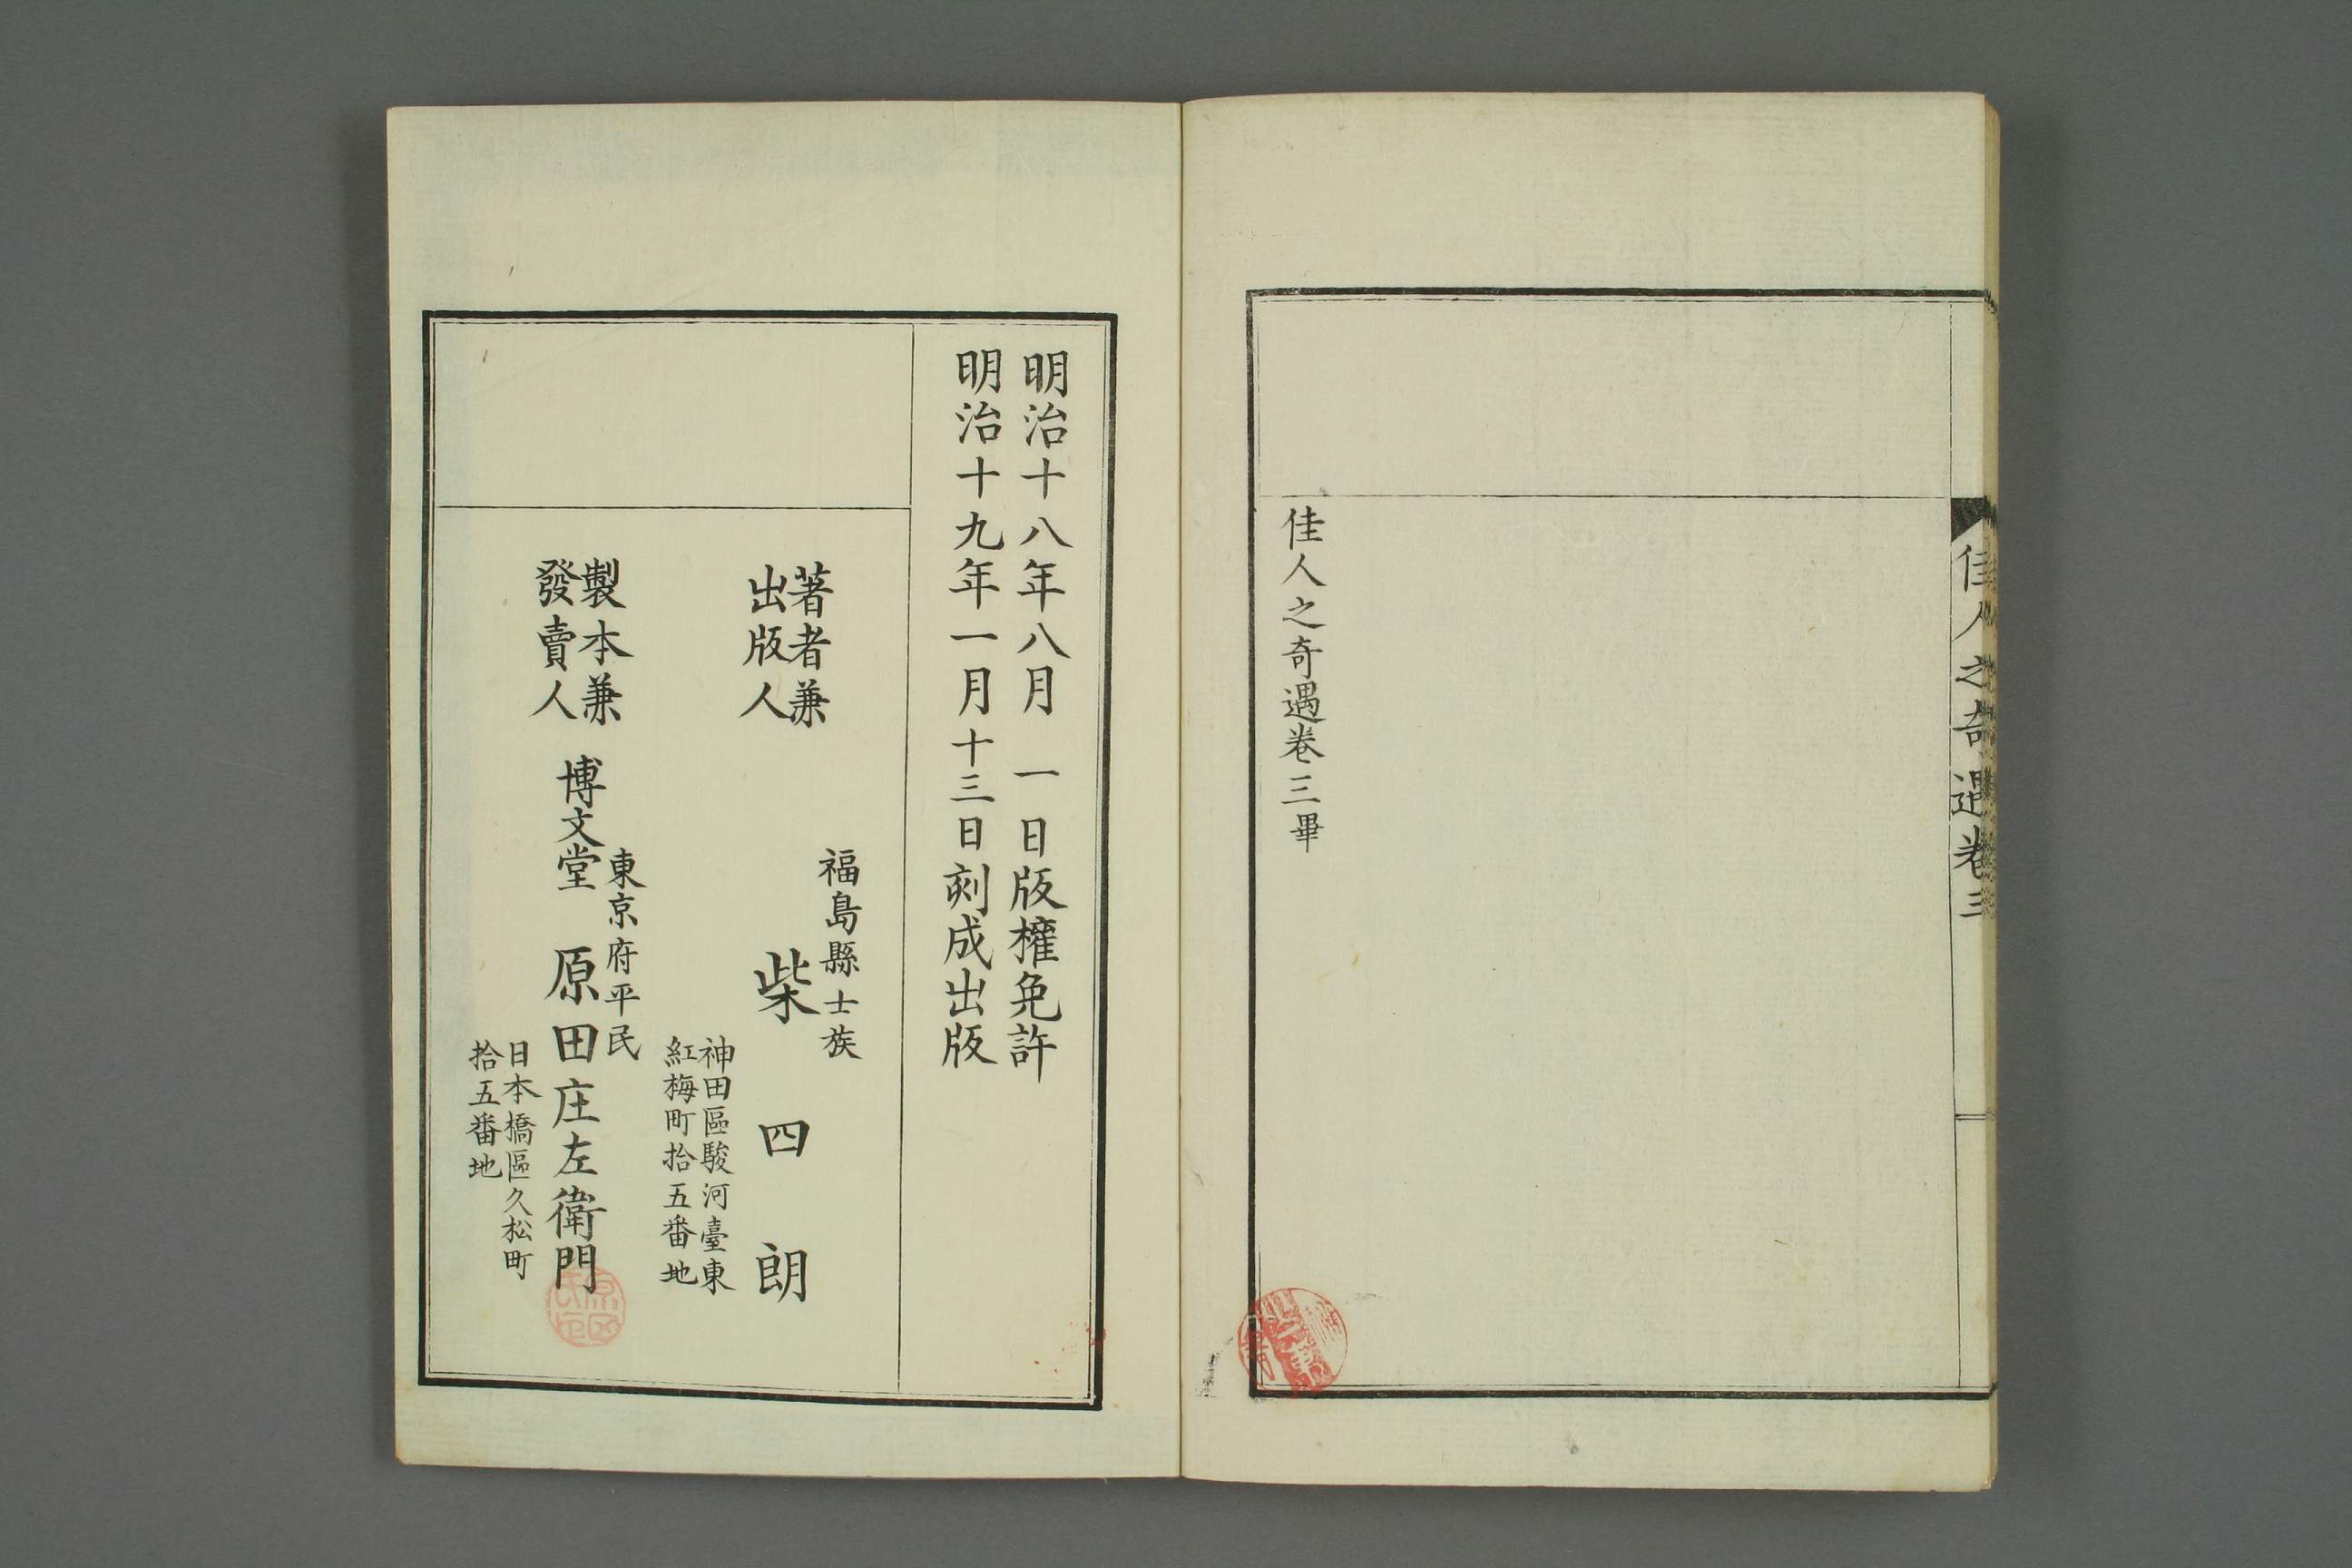 佳人之奇遇卷三
佳人之奇遇卷三畢
明治十八年八月一日版權免許
明治十九年一月十三日刻成出版
著者兼
出版人
福島縣士族
柴四朗
神田區駿河臺東
紅梅町拾五番地
製本兼
發賣人
東京府平民
博文堂 原田庄左衛門
日本橋區久松町
拾五番地